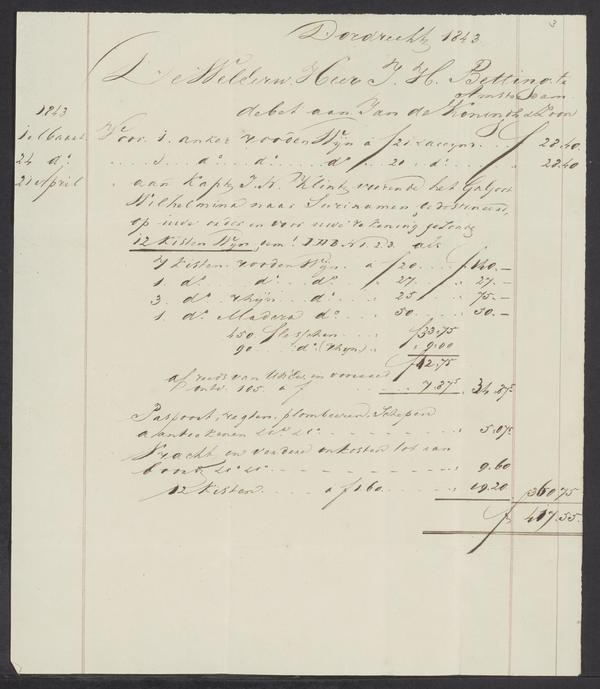 3
Dordrecht, 1843
De WelEerw. Heer J. H. Betting te
Amsterdam
debet aan Jan de Koningh & Zoon
1843
1 Maart Voor 1. anker rooden Wijn a f 21 & accijns f 28.40
24 do. " 1. do. do. do. " 21 do. " 28.40
21 April " aan Kapt. J. A. Klint, voerende het Galjoot
Wilhelmina naar Surinamen gedestineerd,
op uwe order en voor uwe rekening gezonden
12 Kisten Wijn, gem. als
7 Kisten rooden Wijn a f 20 f 140.-
1. do. do. do. " 27 " 27.-
3. do. Rhijn do. " 25 " 75.-
1. do. Madera do. " 50 " 50.-
450 flesschen f 33.75
90 do. (Rhijn) " 9.00
f 42.75
af reeds van UwEw. in voorraad
ontv. 105. a f 7.875 34.875
Paspoort, regten, plombeeren, Schepen
aanteekenen &c. &c. " 5.075
Vracht en verdere onkosten tot aan
boord &c. &c. " 9.60
12 Kisten a f 1.60 " 19.20 360.75
f 417.55